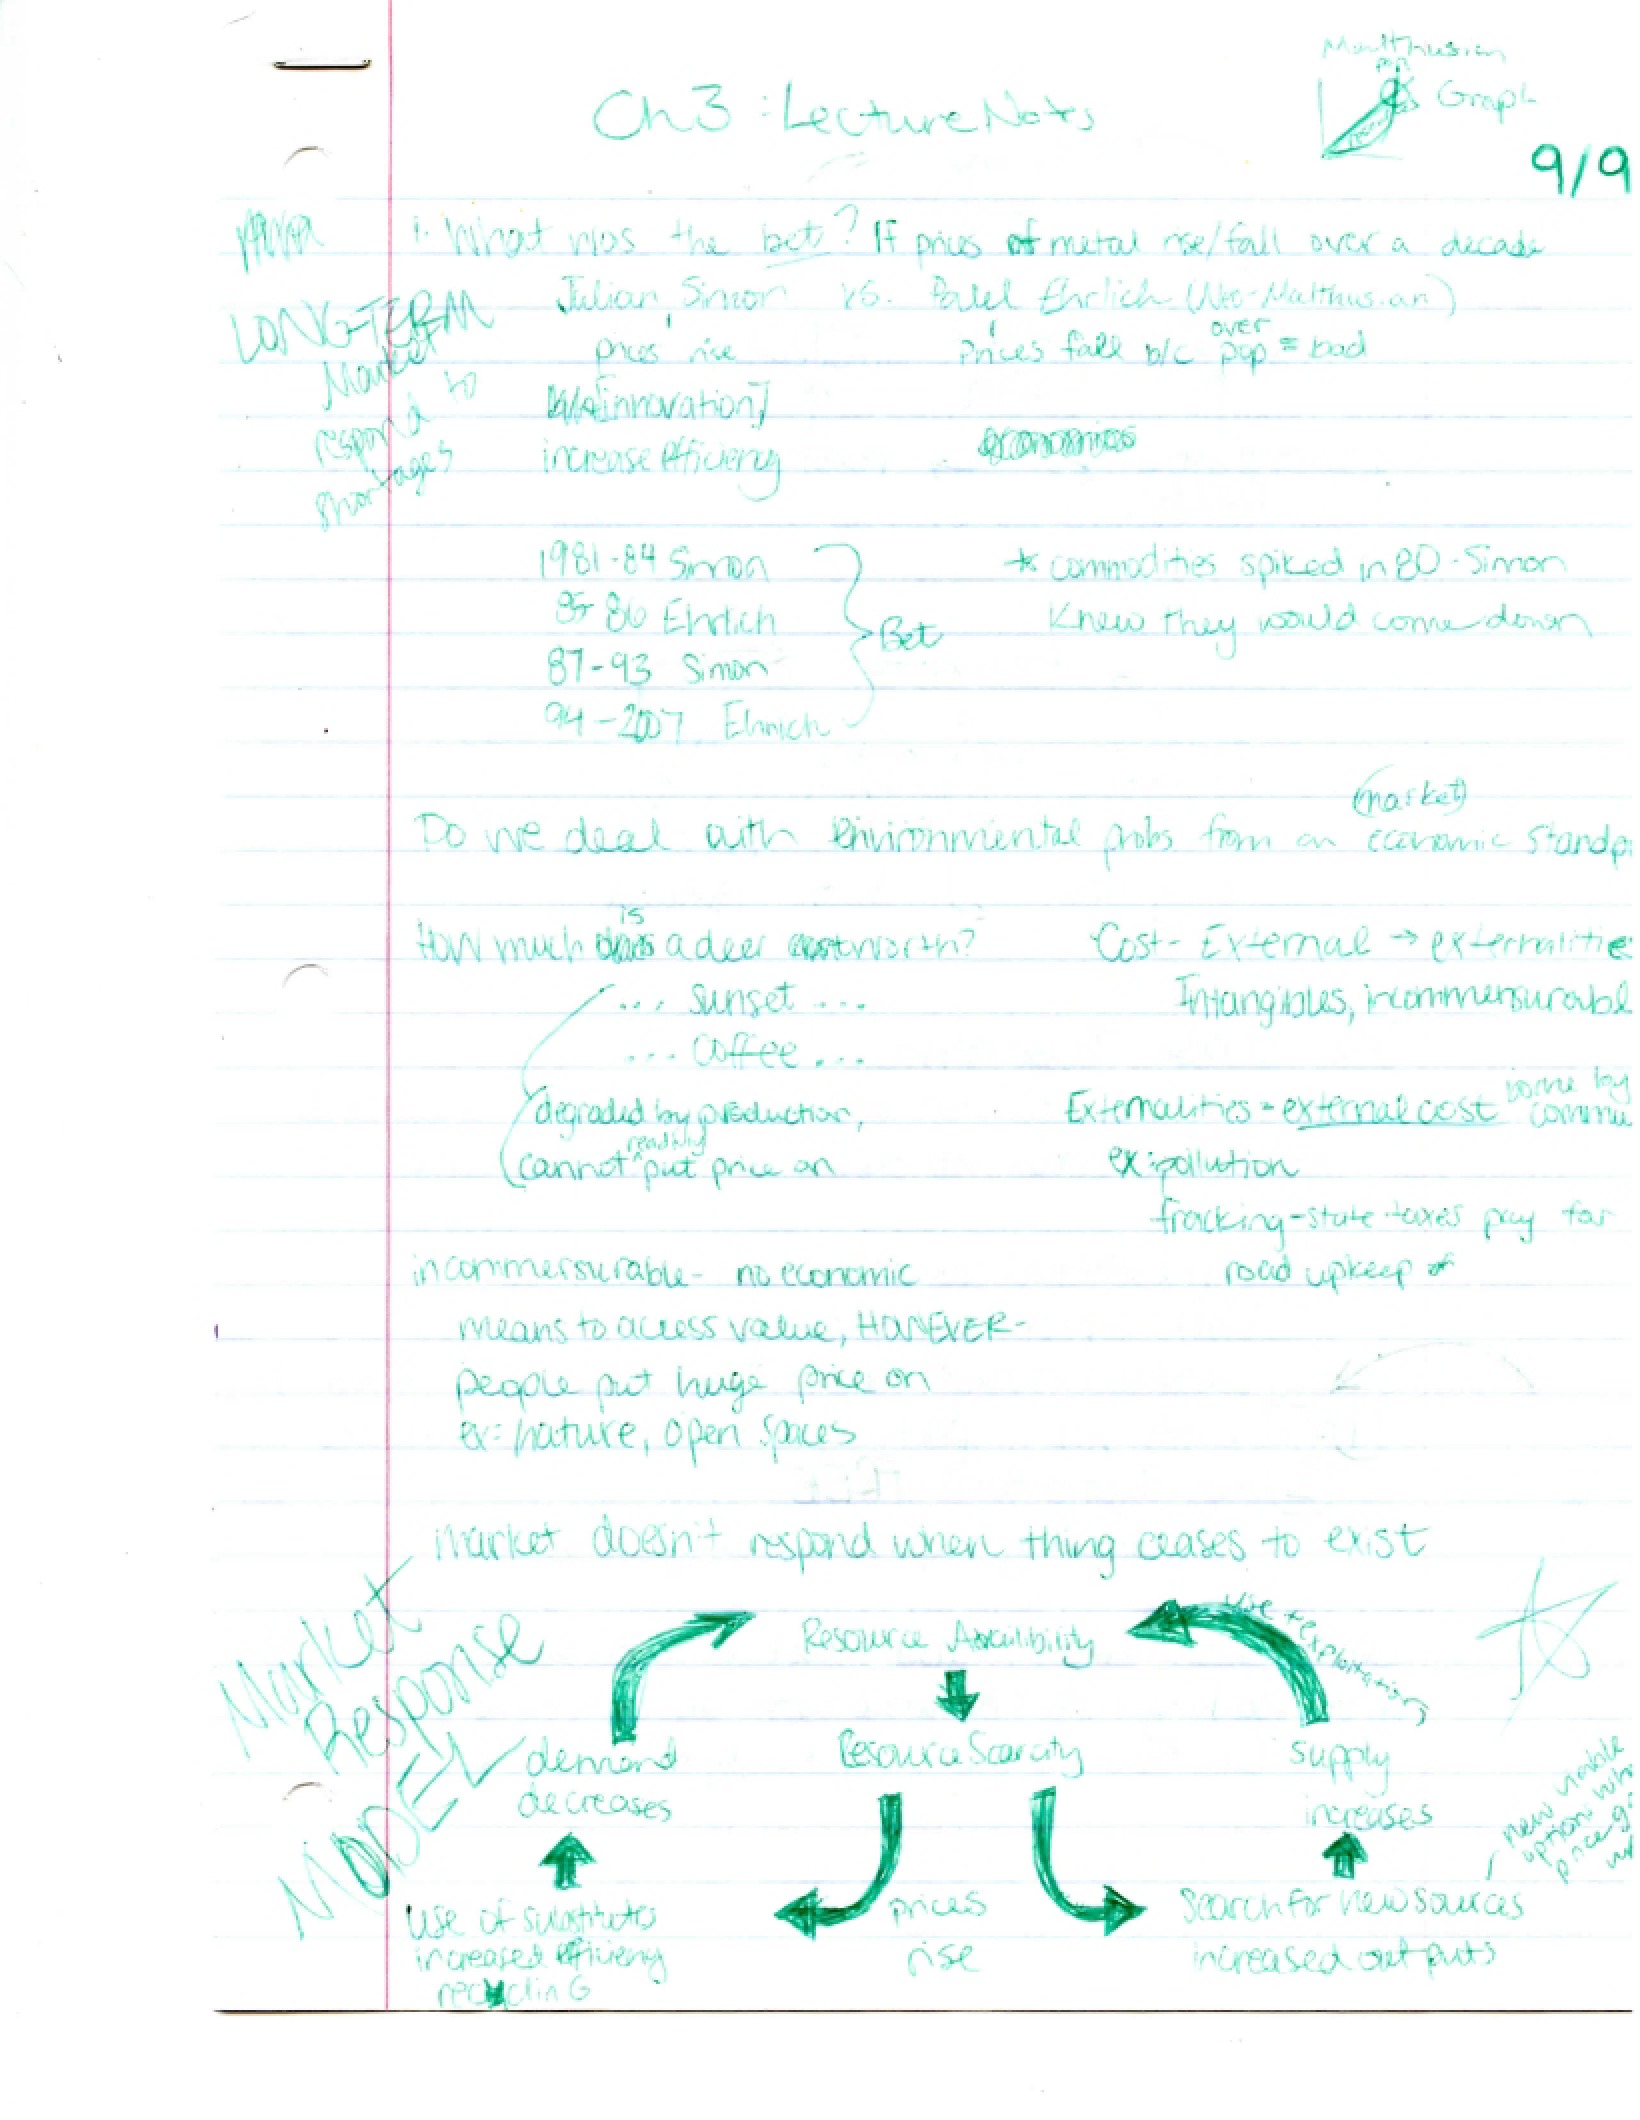 Malthusian
pop
Graph
Ch 3: Lecture Notes
9/9
1. What was the bet? If prices of metal rise/fall over a decade
Julian Simon vs. Paul Ehrlich (Neo-Malthusian)
LONG-TERM
Market
respond to
shortages
prices rise
Prices fall b/c over pop = bad
[innovation]
increase efficiency
economies
1981-84 Simon
85-86 Ehrlich
87-93 Simon
94-2007 Ehrlich
Bet
* commodities spiked in 80 - Simon
Knew they would come down
(market)
Do we deal with Environmental probs from an economic standp
How much is a deer worth?
... sunset ...
... coffee ...
degraded by production,
cannot readily put price on
Cost - External → externalitie
Intangibles, incommensurabl
Externalities = external cost borne by
commu
ex: pollution
fracking - state taxes pay for
road upkeep of
incommensurable - no economic
means to access value, HOWEVER-
people put huge price on
ex: nature, open spaces
Market doesn't respond when thing ceases to exist
Market
Response
MODEL
Resource Availibility
use + exploitation
Resource Scarcity
demand
decreases
supply
increases
new viable
option
price
Use of substitutes
increased efficiency
recyclinG
prices
rise
Search for New sources
increased outputs